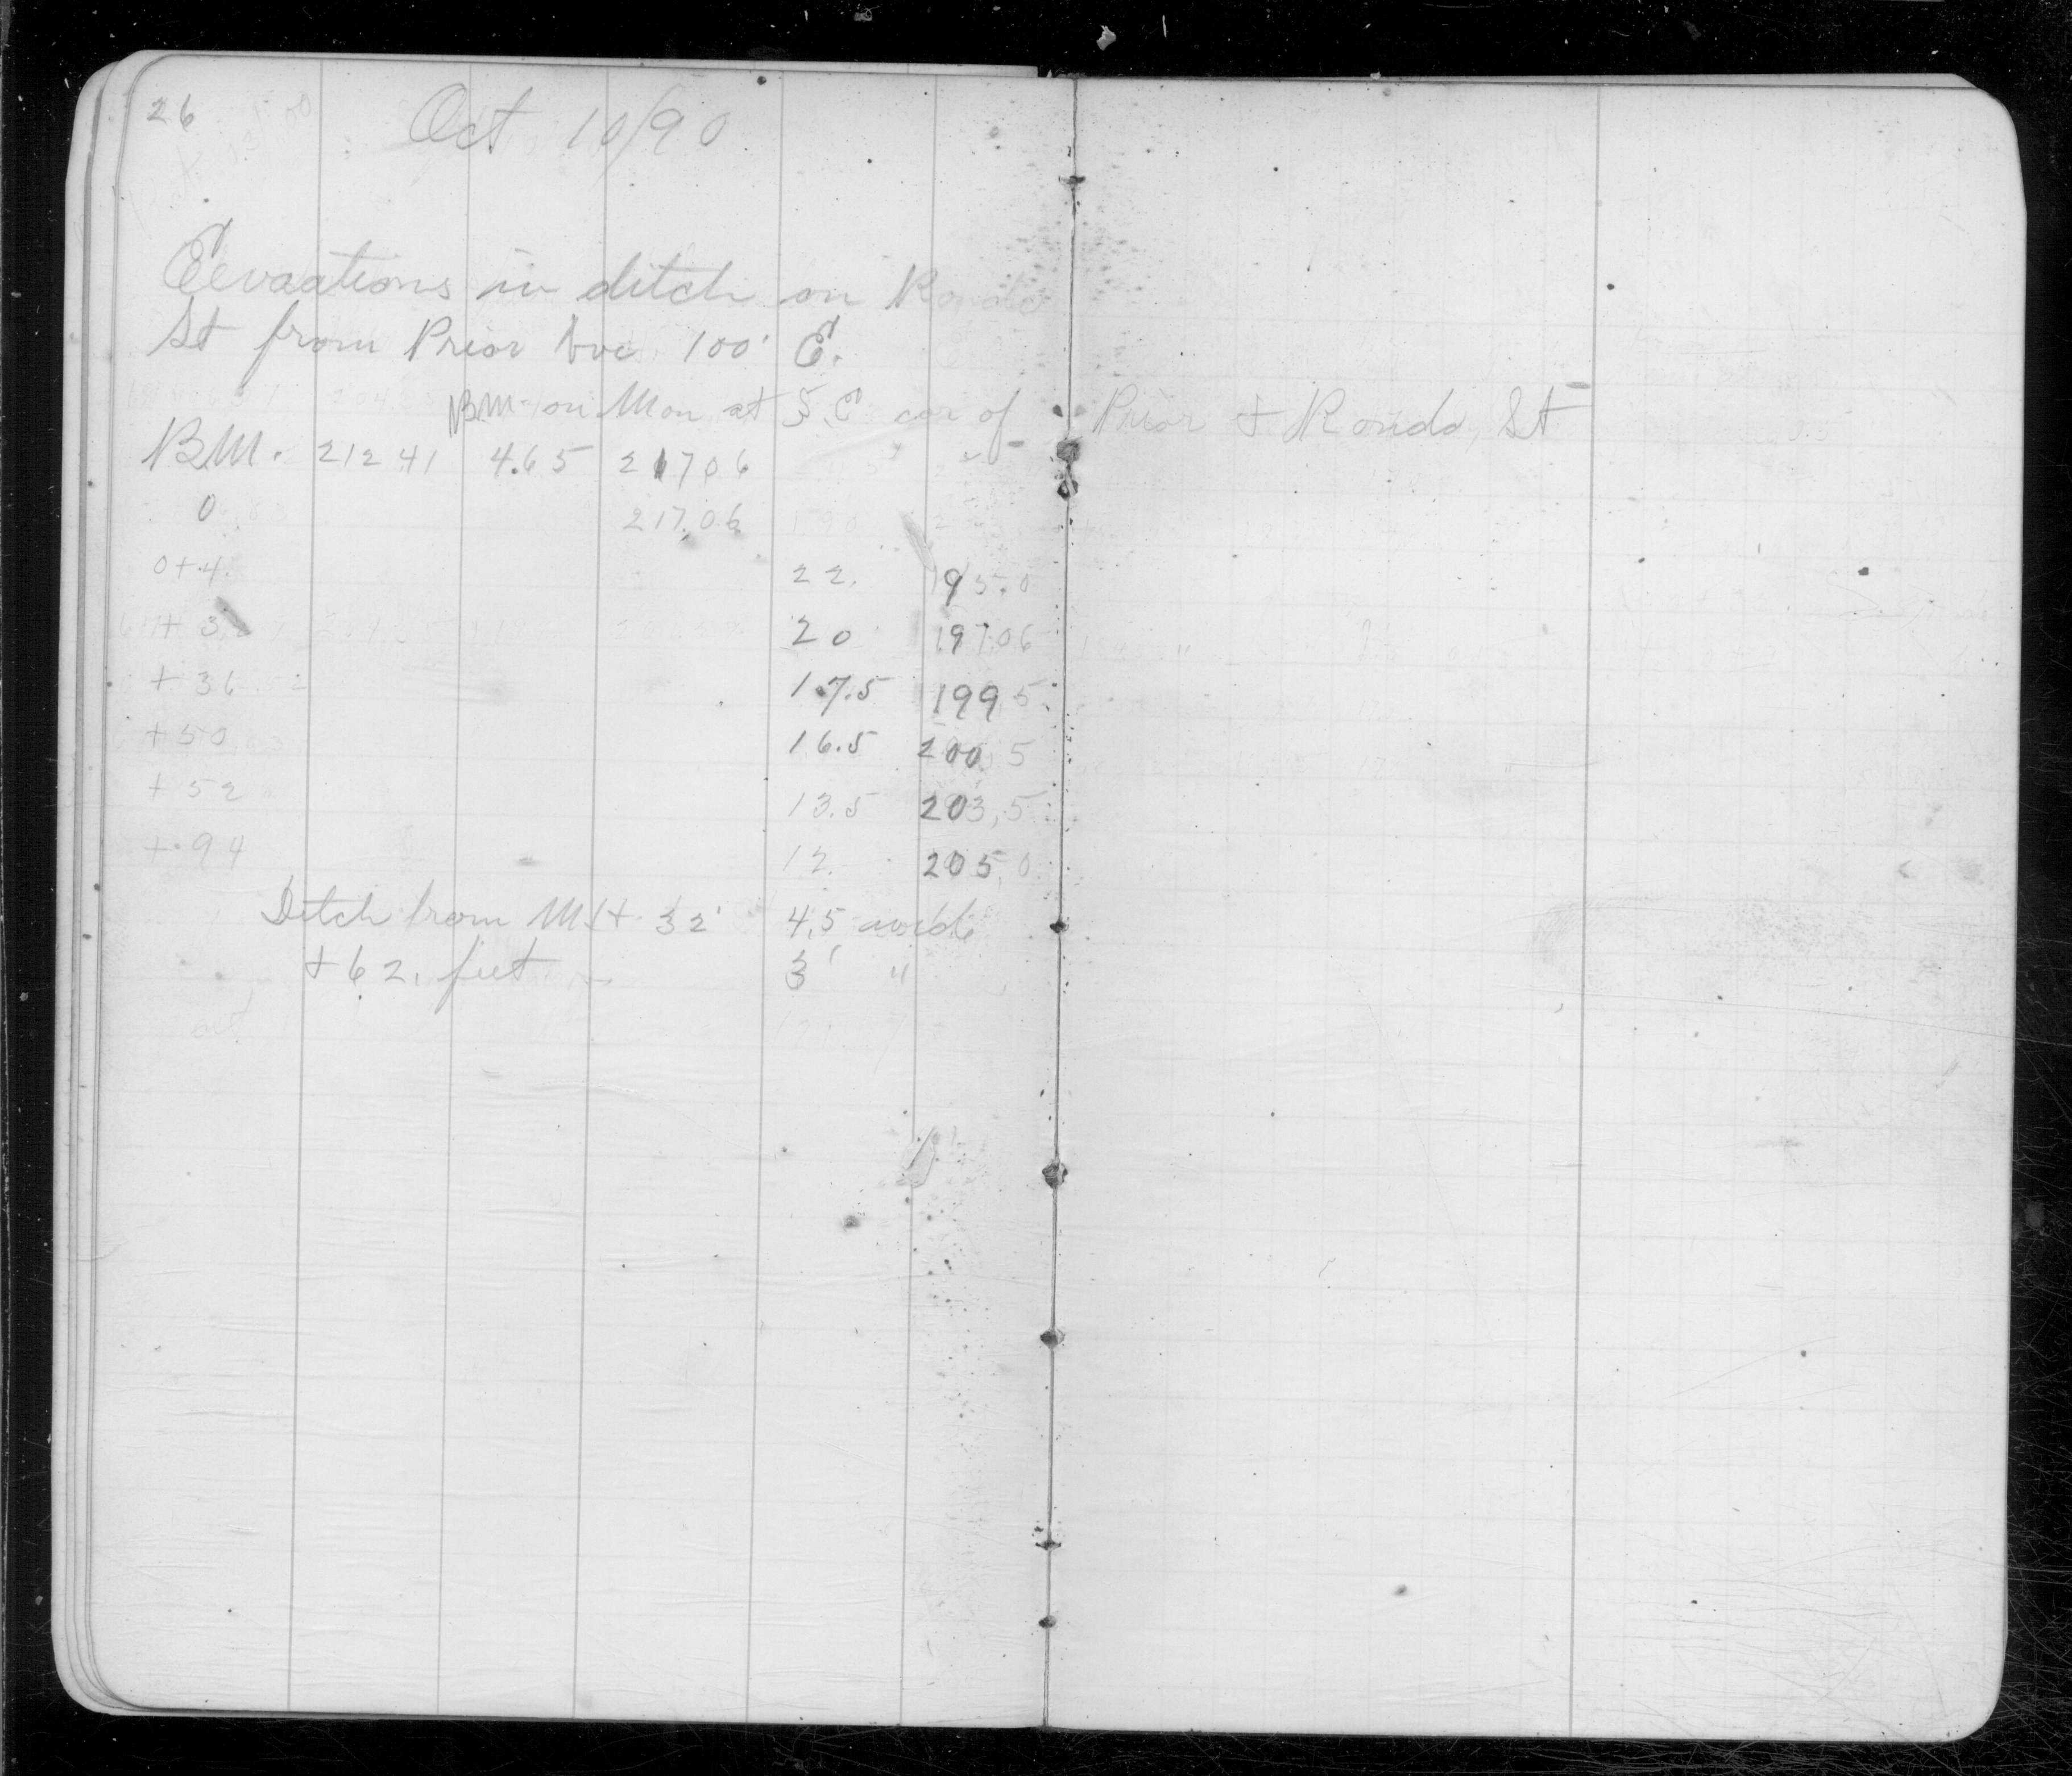 26
Oct 10/90
Eevaations in ditch on Rondo
St from Prior Ave 100' E.
BM on Mon at S.E cor of Prior & Rondo, St
BM. 21241 4.65 21706
0 217.06
0+4. 22. 195.0
+ 32 20 197.06
+ 36 17.5 199 5
+ 50 16.5 200 5
+ 52 13.5 203,5
+ 94 12. 205,0
Ditch from MH 32' 4.5 wide
+ 62. feet 3' "